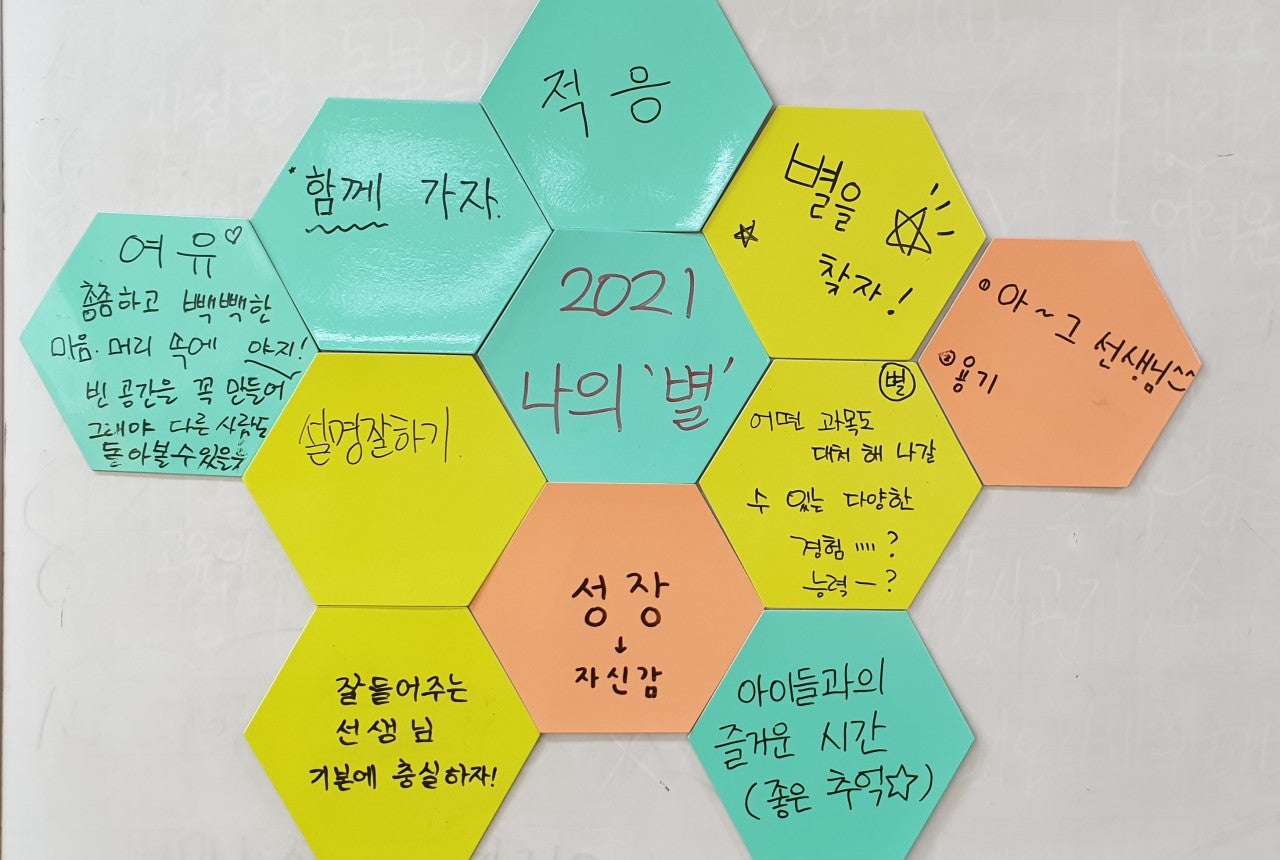 적응
함께 가자.
별을
찾자!
여유♡
촘촘하고 빽빽한
마음.머리 속에 야지!
빈 공간을 꼭 만들어
그래야 다른 사람도
돌아볼 수 있을듯
2021
나의 '별'
① 아~그 선생님^^
② 용기
설명잘하기.
별
어떤 과목도
대처 해 나갈
수 있는 다양한
경험 ....?
능력 ㅡ?
성장
↓
자신감
잘 들어주는
선생님
기본에 충실하자!
아이들과의
즐거운 시간
(좋은 추억☆)